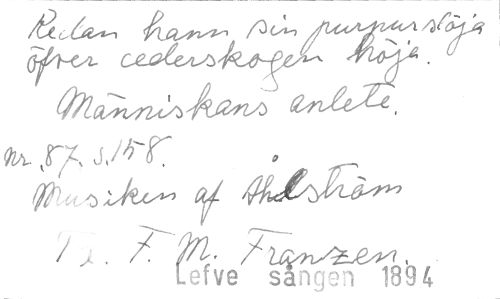 Redan hann sin purpurslöja
öfver cederskogen höja.
Människans anlete.
nr. 87. s. 158.
Musiken af Åhlström
F. M. Franzen.
Lefve sången 1894